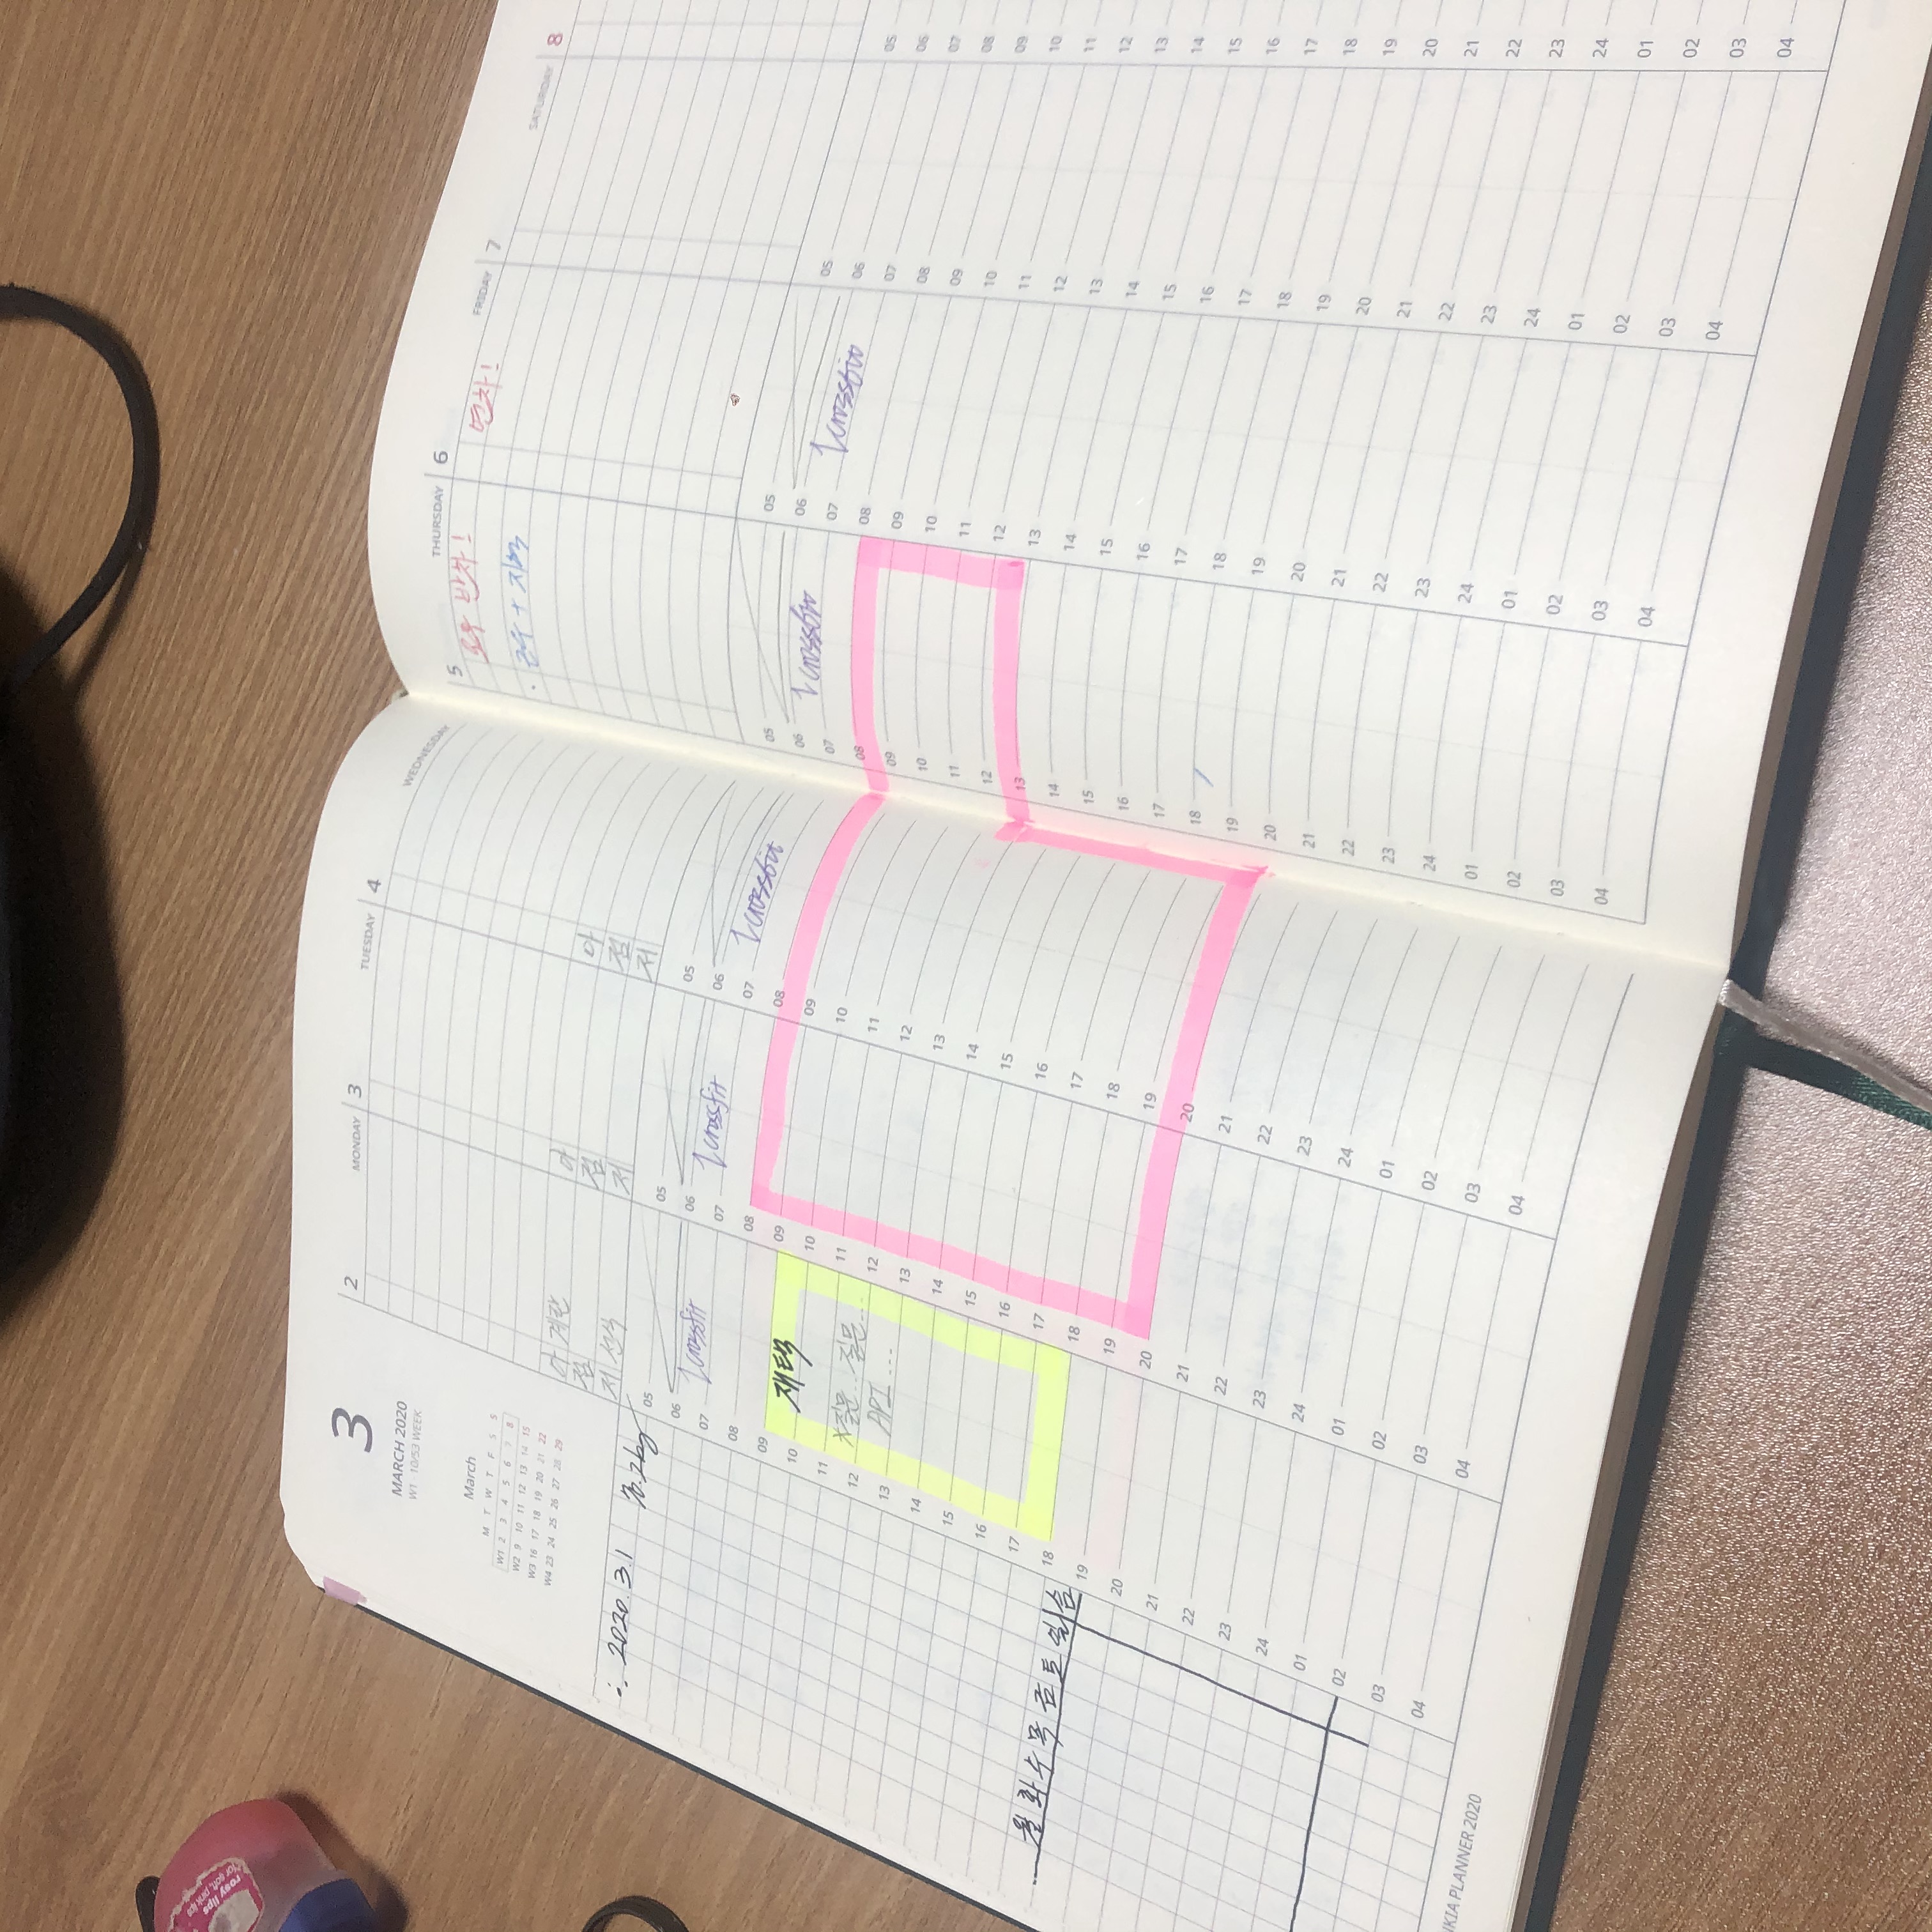 3
MARCH 2020
W1 · 10/53 WEEK
March
M T W T F S S
W1 2 3 4 5 6 7 8
W2 9 10 11 12 13 14 15
W3 16 17 18 19 20 21 22
W4 23 24 25 26 27 28 29
2020. 3. 1
월 화 수 목 금 토 일
PLANNER 2020
2 MONDAY
아 계란
점
저 선식
05
06
crossfit
07
08
09
재택
10
11
질문.. 질문...
12
API ...
13
14
15
16
17
18
19
20
21
22
23
24
01
02
03
04
3 TUESDAY
아
점
저
05
06
crossfit
07
08
09
10
11
12
13
14
15
16
17
18
19
20
21
22
23
24
01
02
03
04
4 WEDNESDAY
아
점
저
05
06
07
crossfit
08
09
10
11
12
13
14
15
16
17
18
19
20
21
22
23
24
01
02
03
04
5 THURSDAY
오후 반차!
05
06
crossfit
07
08
09
10
11
12
13
14
15
16
17
18
19
20
21
22
23
24
01
02
03
04
6 FRIDAY
연차!
05
06
07
crossfit
08
09
10
11
12
13
14
15
16
17
18
19
20
21
22
23
24
01
02
03
04
7 SATURDAY
05
06
07
08
09
10
11
12
13
14
15
16
17
18
19
20
21
22
23
24
01
02
03
04
8
05
06
07
08
09
10
11
12
13
14
15
16
17
18
19
20
21
22
23
24
01
02
03
04
rosy lips